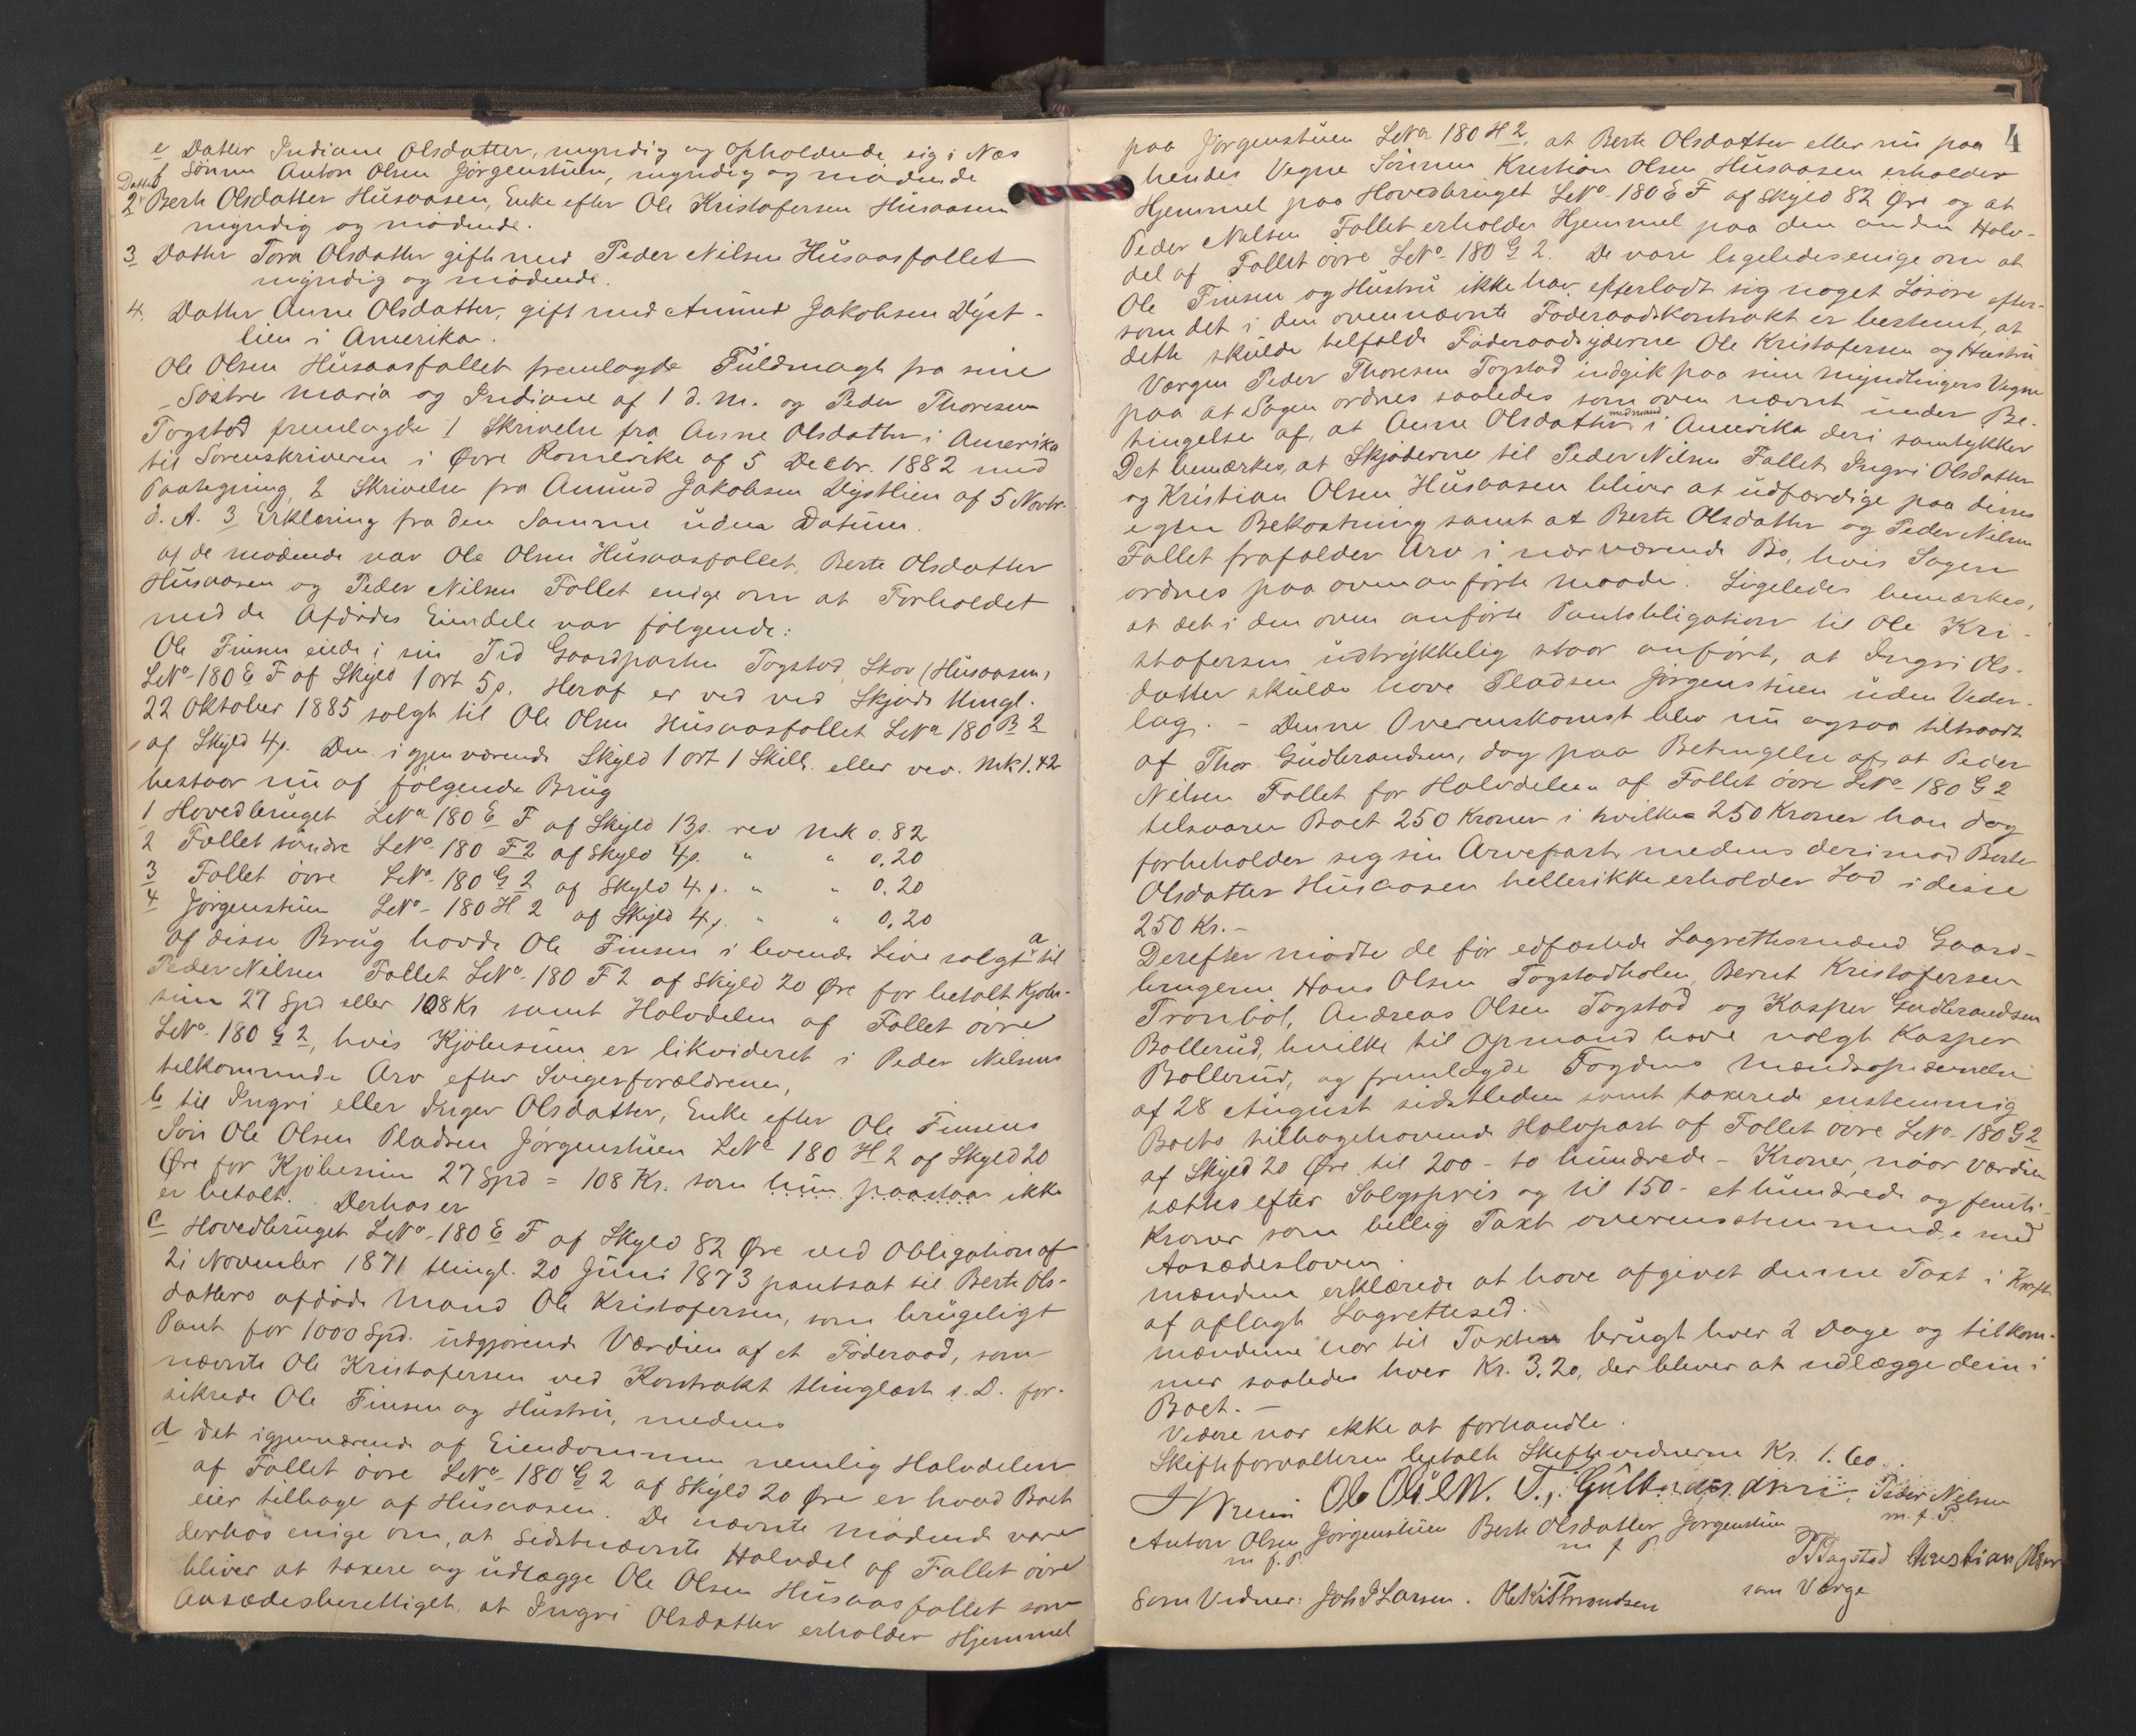 e Datter Indiane Olsdatter, myndig og opholdende sig i Næs
f Sönnen Anton Olsen Jörgenstuen, myndig og mödende
Datter
2 Berte Olsdatter Husaasen, Enke efter Ole Kristofersen Husaasen
myndig og mödende.
3 Datter Tora Olsdatter gift med Peder Nilsen Husaasfallet
myndig og mödende.
4. Datter Anne Olsdatter, gift med Amund Jakobsen Dyst-
lien i Amerika.
Ole Olsen Husaasfallet fremlagde Fuldmagt fra sine
Söstre Maria og Indiane af 1 d. M. og Peder Thoresen
Togstad fremlagde 1 Skrivelse fra Anne Olsdatter i Amerika
til Sorenskriveren i Øvre Romerike af 5 Decbr. 1882 med
Paategning, 2 Skrivelse fra Amund Jakobsen Dystlien af 5 Novbr.
d. A. 3 Erklæring fra den Samme uden Datum.
af de mödende var Ole Olsen Husaasfallet, Berte Olsdatter
Husaasen og Peder Nilsen Fallet enige om at Forholdet
med de Afdödes Eiendele var fölgende:
Ole Finsen eiede i sin Tid Gaardparten Togstad Skov (Husaasen)
LNo 180 E F af Skyld 1 ort 5 s. Heraf er ved ved Skjöde thingl.
22 Oktober 1885 solgt til Ole Olsen Husaasfallet LNo 180 B 2
af Skyld 4 s. Den igjenværende Skyld 1 ort 1 Skill. eller rev. Mk 1.42
bestaar nu af fölgende Brug
1 Hovedbruget LNo 180 E F af Skyld 13 s. rev Mk 0.82
2 Fallet söndre LNo 180 F 2 af Skyld 4 s. " " 0.20
3 Fallet övre LNo 180 G 2 af Skyld 4 s. " " 0.20
4 Jörgenstuen LNo 180 H 2 af Skyld 4 s. " " 0.20
Af disse Brug havde Ole Finsen i levende Live solgt a til
Peder Nilsen Fallet LNo 180 F 2 af Skyld 20 Øre for betalt Kjöbe-
sum 27 Spd eller 108 Kr samt Halvdelen af Fallet övre
LNo 180 G 2, hvis Kjöbesum er likvideret i Peder Nilsens
tilkommende Arv efter Svigerforældrene,
b til Ingri eller Inger Olsdatter, Enke efter Ole Finsens
Sön Ole Olsen Pladsen Jörgenstuen LNo 180 H 2 af Skyld 20
Øre for Kjöbesum 27 Spd = 108 Kr. som hun paastaar ikke
er betalt. Derhos er
c Hovedbruget LNo 180 E F af Skyld 82 Øre ved Obligation af
21 November 1871 thingl. 20 Juni 1873 pantsat til Berte Ols-
datters afdöde Mand Ole Kristofersen, som brugeligt
Pant for 1000 Spd. udgjörende Værdien af et Föderaad, som
nævnte Ole Kristofersen ved Kontrakt thinglæst s. D. for-
sikrede Ole Finsen og Hustru, medens
d det igjenværende af Eiendommen nemlig Halvdelen
af Fallet övre LNo 180 G 2 af Skyld 20 Øre er hvad Boet
eier tilbage af Husaasen. De nævnte mödende vare
derhos enige om, at sidstnævnte Halvdel af Fallet övre
bliver at taxere og udlægge Ole Olsen Husaasfallet som
Aasædesberettiget at Ingri Olsdatter erholder Hjemmel
4
paa Jörgenstuen LNo 180 H 2, at Berte Olsdatter eller nu paa
hendes Vegne Sönnen Kristian Olsen Husaasen erholder
Hjemmel paa Hovedbruget LNo 180 E F af Skyld 82 Øre og at
Peder Nilsen Fallet erholder Hjemmel paa den anden Halv-
del af Fallet övre LNo 180 G 2. De vare ligeledes enige om at
Ole Finsen og Hustru ikke har efterladt sig noget Lösöre efter-
som det i den ovennævnte Föderaadskontrakt er bestemt, at
dette skulde tilfalde Föderaadsyderne Ole Kristofersen og Hustru
Værgen Peder Thoresen Togstad indgik paa sine Myndlingers Vegne
paa at Sagen ordnes saaledes som oven nævnt under Be-
tingelse af, at Anne Olsdatter med mand i Amerika deri samtykker
Det bemærkes, at Skjöderne til Peder Nilsen Fallet, Ingri Olsdatter
og Kristian Olsen Husaasen bliver at udfærdige paa deres
egen Bekostning samt at Berte Olsdatter og Peder Nilsen
Fallet frafalder Arv i nærværende Bo, hvis Sagen
ordnes paa ovenanförte Maade. Ligeledes bemærkes,
at det i den oven anförte Pantobligation til Ole Kri-
stofersen udtrykkelig staar anfört, at Ingri Ols-
datter skulde have Pladsen Jörgenstuen uden Veder-
lag. - Denne Overenskomst blev nu ogsaa tiltraadt
af Thor Gudbrandsen, dog paa Betingelse af, at Peder
Nilsen Fallet for Halvdelen af Fallet övre LNo 180 G 2
tilsvarer Boet 250 Kroner i hvilke 250 Kroner han dog
forbeholder sig sin Arvepart, medens derimod Berte
Olsdatter Husaasen heller ikke erholder Lod i disse
250 Kr. -
Derefter mödte de för edfæstede Lagrettesmænd Gaard-
brugerne Hans Olsen Togstadholen, Bernt Kristofersen
Tronböl, Andreas Olsen Togstad og Kasper Gudbrandsen
Bollerud, hvilke til Opmand have valgt Kasper
Bollerud, og fremlagde Fogdens Mændsopnævnelse
af 28 August sidstleden samt taxerede enstemmig
Boets tilbagehavende Halvpart af Fallet övre LNo 180 G 2
af Skyld 20 Øre til 200 - to hundrede - Kroner, naar Værdien
sættes efter Salgspris og til 150 - et hundrede og femti -
Kroner som billig Taxt overensstemmende med
Aasædesloven.
Mændene erklærede at have afgivet denne Taxt i Kraft
af aflagt Lagrettesed.
Mændene har til Taxten brugt hver 2 Dage og tilkom-
mer saaledes hver Kr. 3.20, der bliver at udlægge dem i
Boet. -
Videre var ikke at forhandle.
Skifteforvalteren betalte Skiftevidnerne Kr. 1.60.
Ole Olsen. T. Gulbrandsen. Peder Nilsen
m. f. P.
Anton Olsen Jörgenstuen Berte Olsdatter Jorgenstuen
m f. P. m f P.
P T Tagstad Christian Olsen
som Værge
Som Vidner: Joh J Larsen. Ole Kr Thrandsen